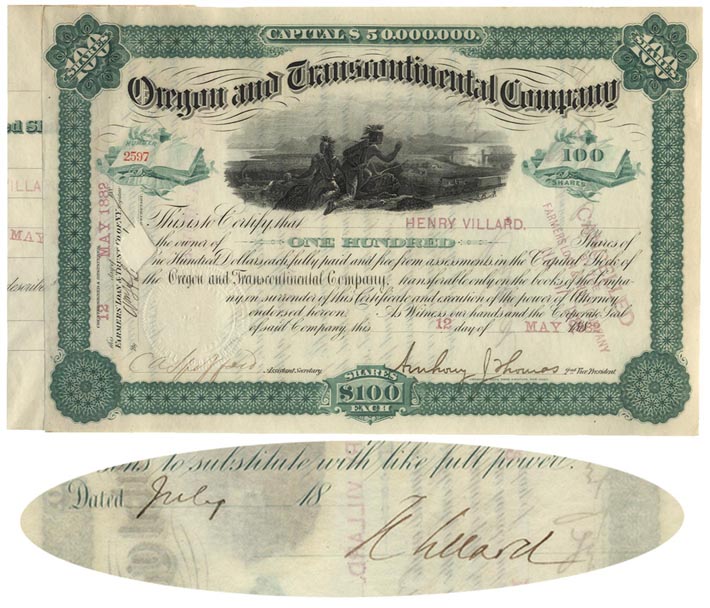 CAPITAL $50,000,000.
100 100
Oregon and Transcontinental Company
NUMBER
2597
100
SHARES
This is to Certify that HENRY VILLARD.
the owner of ONE HUNDRED Shares of
One Hundred Dollars each, fully paid and free from assessments in the Capital Stock of
the Oregon and Transcontinental Company, transferable only on the books of the Compa-
ny, on surrender of this Certificate and execution of the power of Attorney
endorsed hereon. As Witness our hands and the Corporate Seal
of said Company, this 12 day of MAY 1882
Assistant Secretary
Anthony J Thomas 2nd Vice President
SHARES
$100
EACH
12 MAY 1882
FARMERS LOAN & TRUST CO. OF N.Y.
VILLA
MAY
describe
to substitute with like full power.
Dated July 18
H Villard
VILLARD.